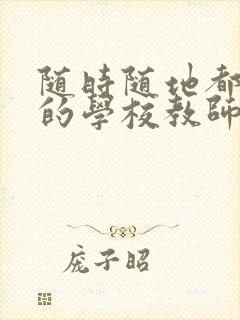 随時随地都
的學校教師
庞子昭